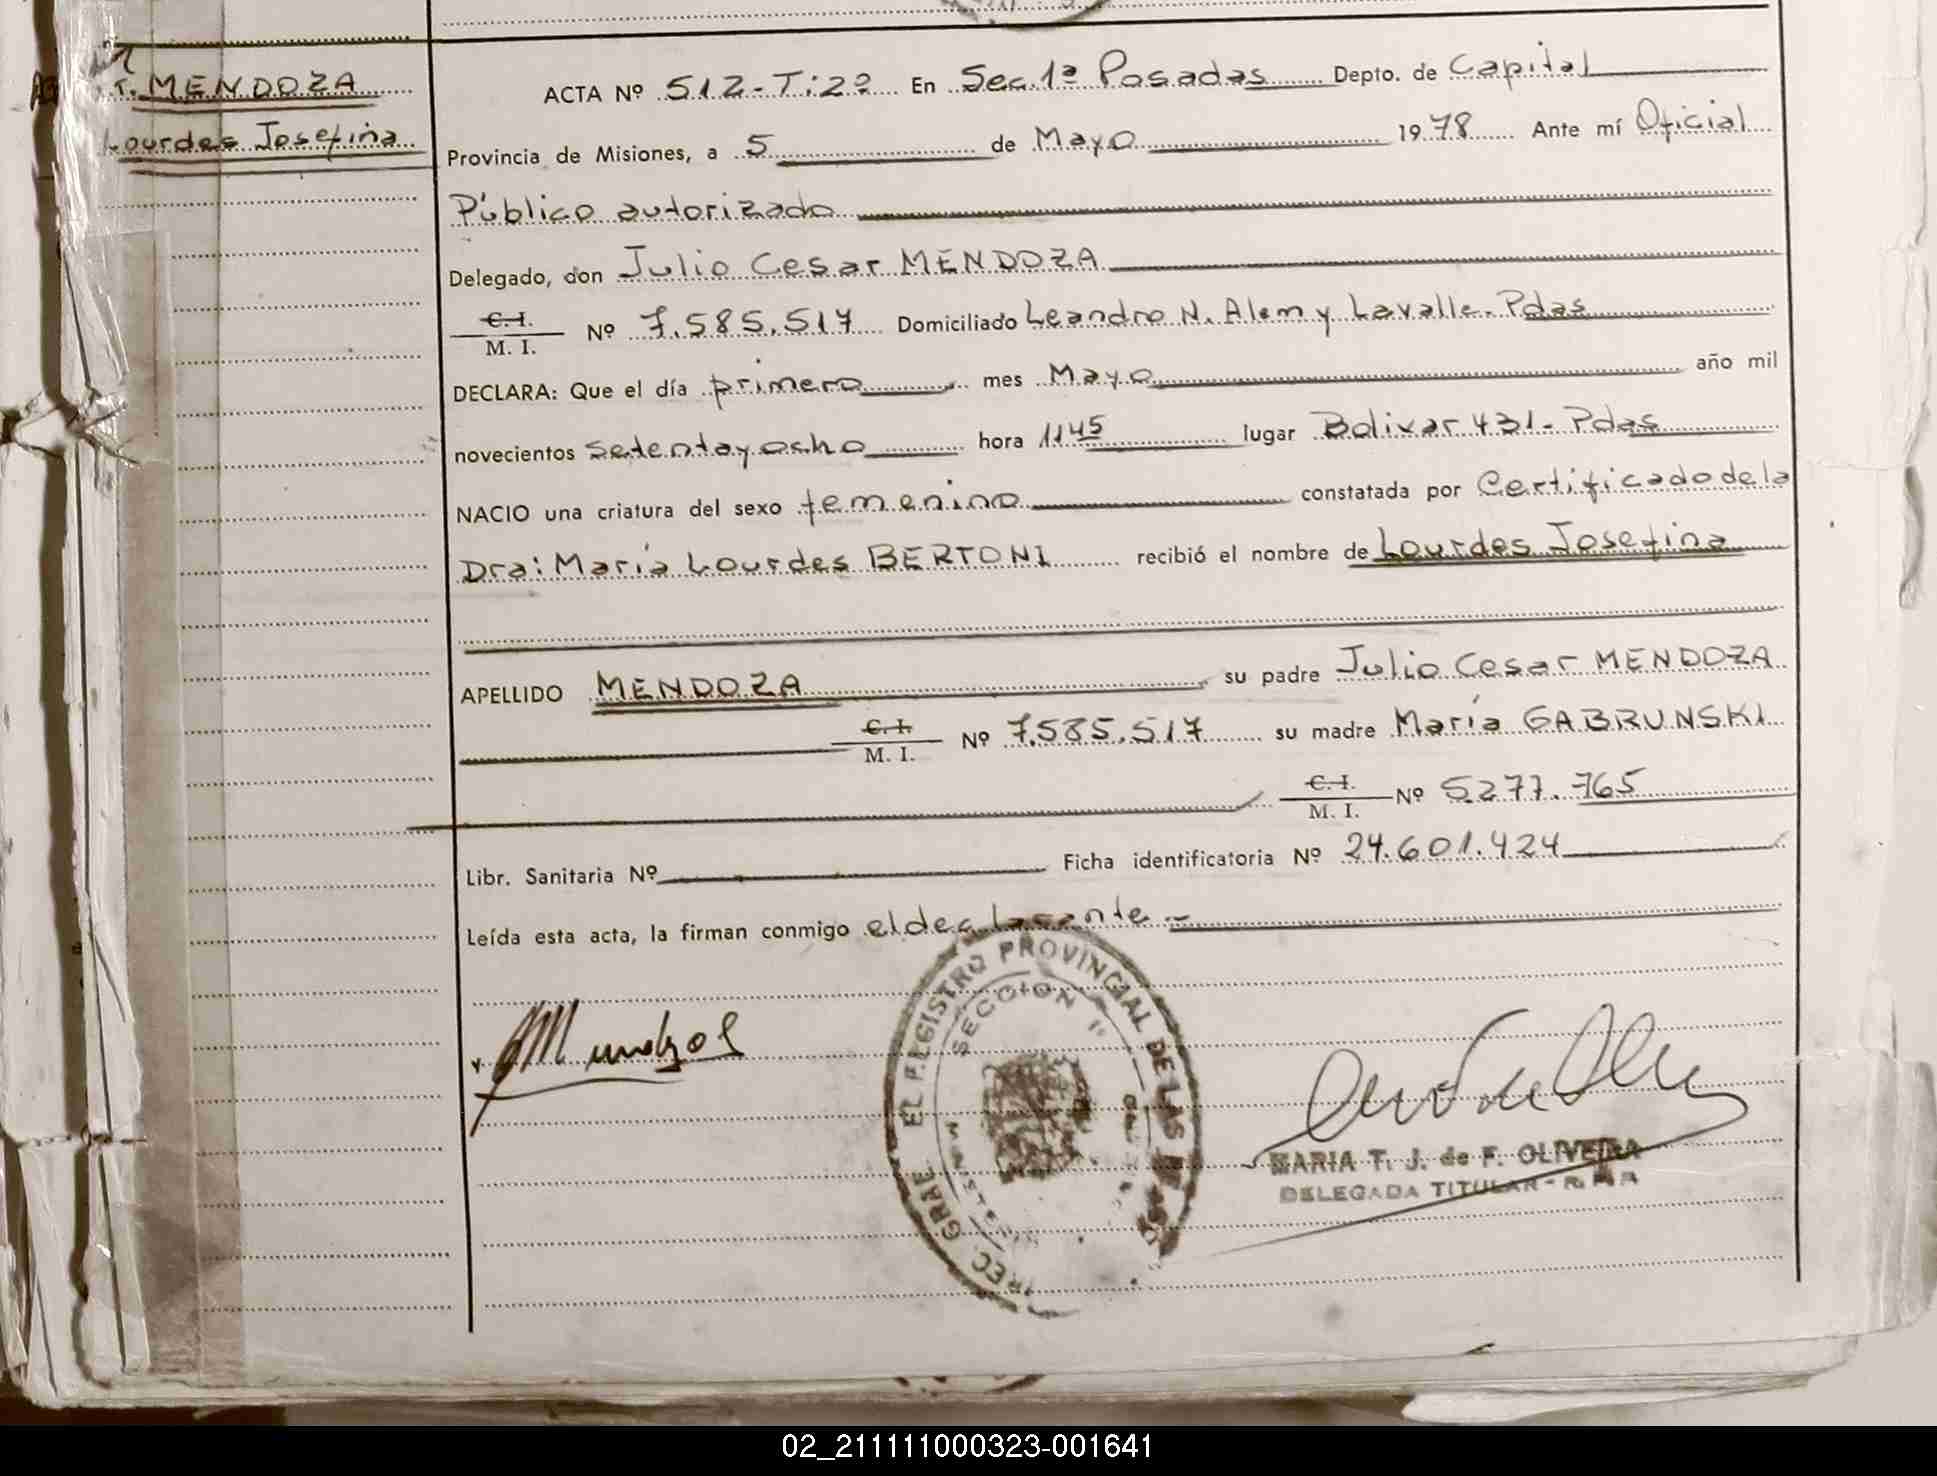 MENDOZA
Lourdes Josefina
ACTA Nº 512-T:2º En Sec.1ª Posadas Depto. de Capital
Provincia de Misiones, a 5 de Mayo 1978 Ante mí Oficial
Público autorizado
Delegado, don Julio Cesar MENDOZA
C.I. / M. I. Nº 7.585.517 Domiciliado Leandro N. Alem y Lavalle. Pdas
DECLARA: Que el día primero mes Mayo año mil
novecientos setentayocho hora 1145 lugar Bolivar 431- Pdas
NACIO una criatura del sexo femenino constatada por Certificado de la
Dra: María Lourdes BERTONI recibió el nombre de Lourdes Josefina
APELLIDO MENDOZA su padre Julio Cesar MENDOZA
C.I. / M. I. Nº 7.585.517 su madre María GABRUNSKI
C.I. / M. I. Nº 5.277.765
Libr. Sanitaria Nº Ficha identificatoria Nº 24.601.424
Leída esta acta, la firman conmigo el declarante
REGISTRO PROVINCIAL DE LAS
SECCION 1ª
MARIA T. J. de F. OLIVEIRA
DELEGADA TITULAR
02_211111000323-001641